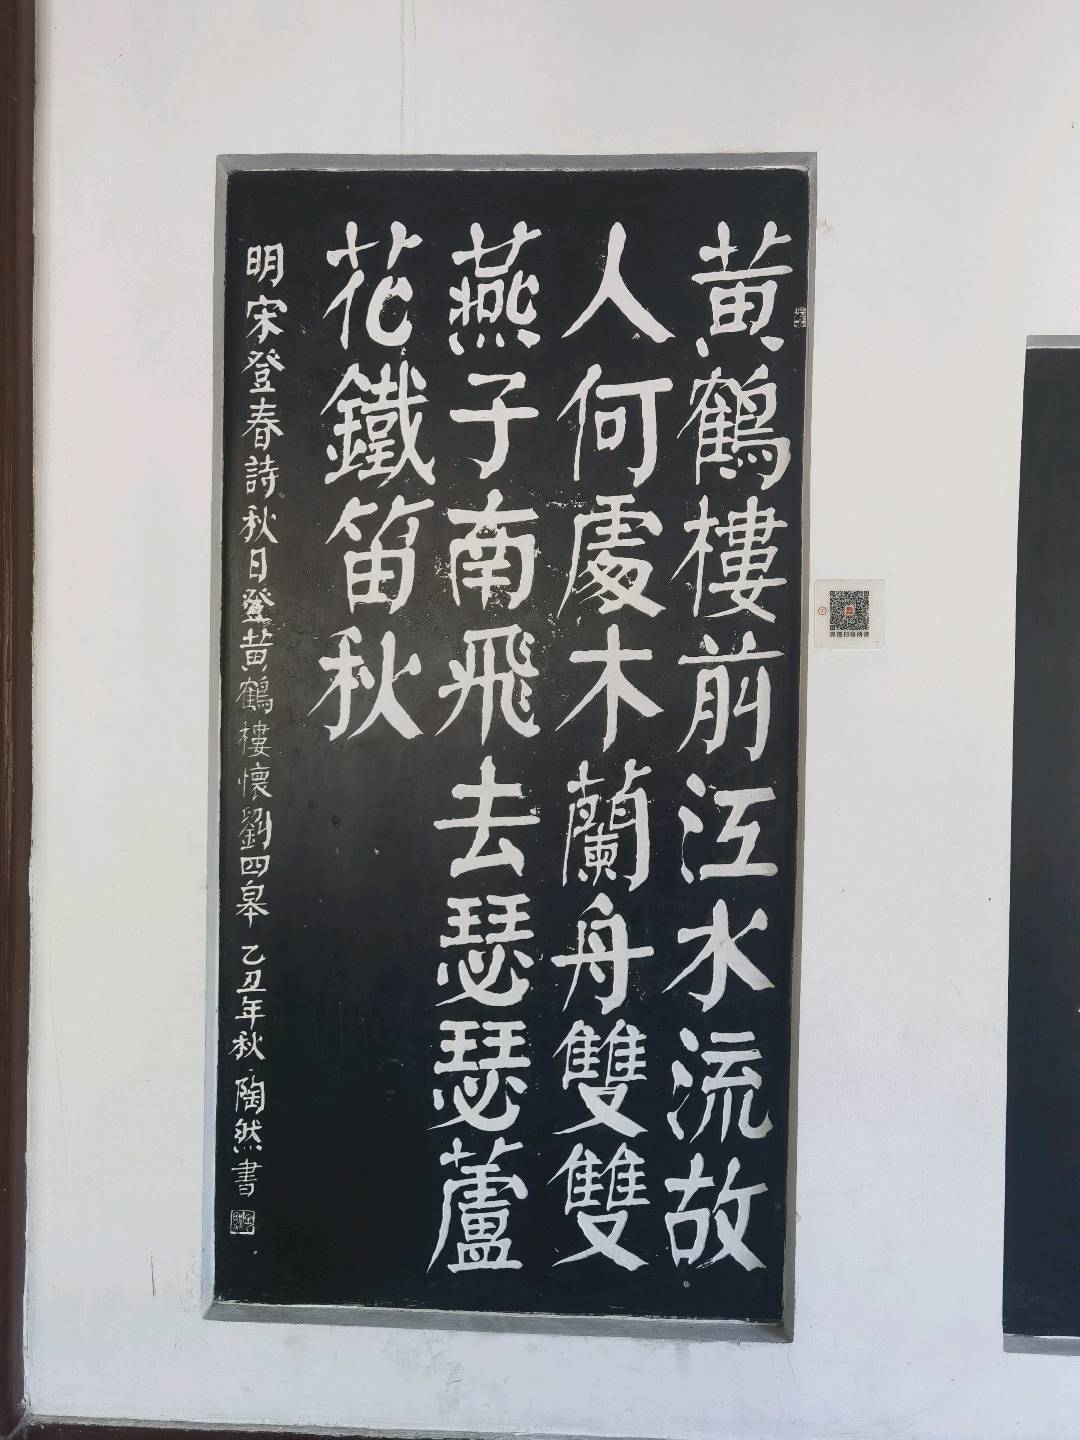 黄鶴樓前江水流故
人何處木蘭舟雙雙
燕子南飛去瑟瑟蘆
花鐵笛秋
明宋登春詩秋日登黄鶴樓懷劉四皋 乙丑年秋 陶然書
微信扫码阅读